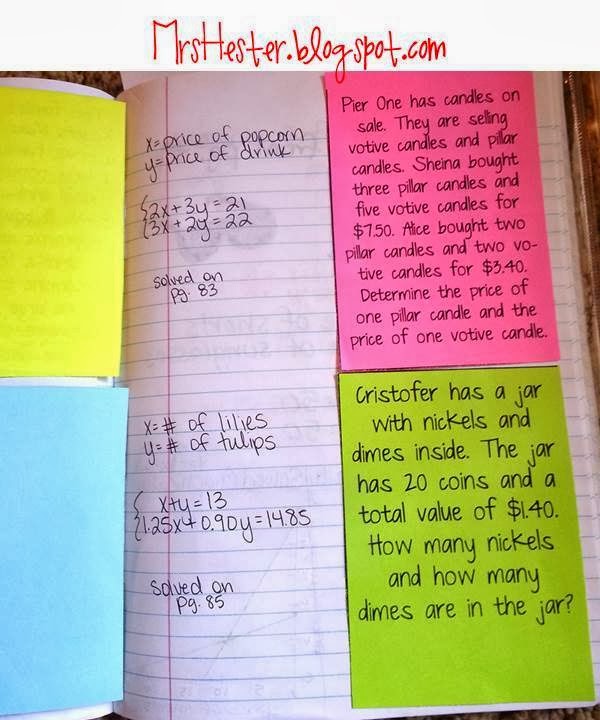 MrsHester.blogspot.com
x=price of popcorn
y=price of drink
2x+3y=21
3x+2y=22
solved on
pg. 83
x=# of lilies
y=# of tulips
x+y=13
1.25x+0.90y=14.85
solved on
pg. 85
Pier One has candles on
sale. They are selling
votive candles and pillar
candles. Sheina bought
three pillar candles and
five votive candles for
$7.50. Alice bought two
pillar candles and two vo-
tive candles for $3.40.
Determine the price of
one pillar candle and the
price of one votive candle.
Cristofer has a jar
with nickels and
dimes inside. The jar
has 20 coins and a
total value of $1.40.
How many nickels
and how many
dimes are in the jar?